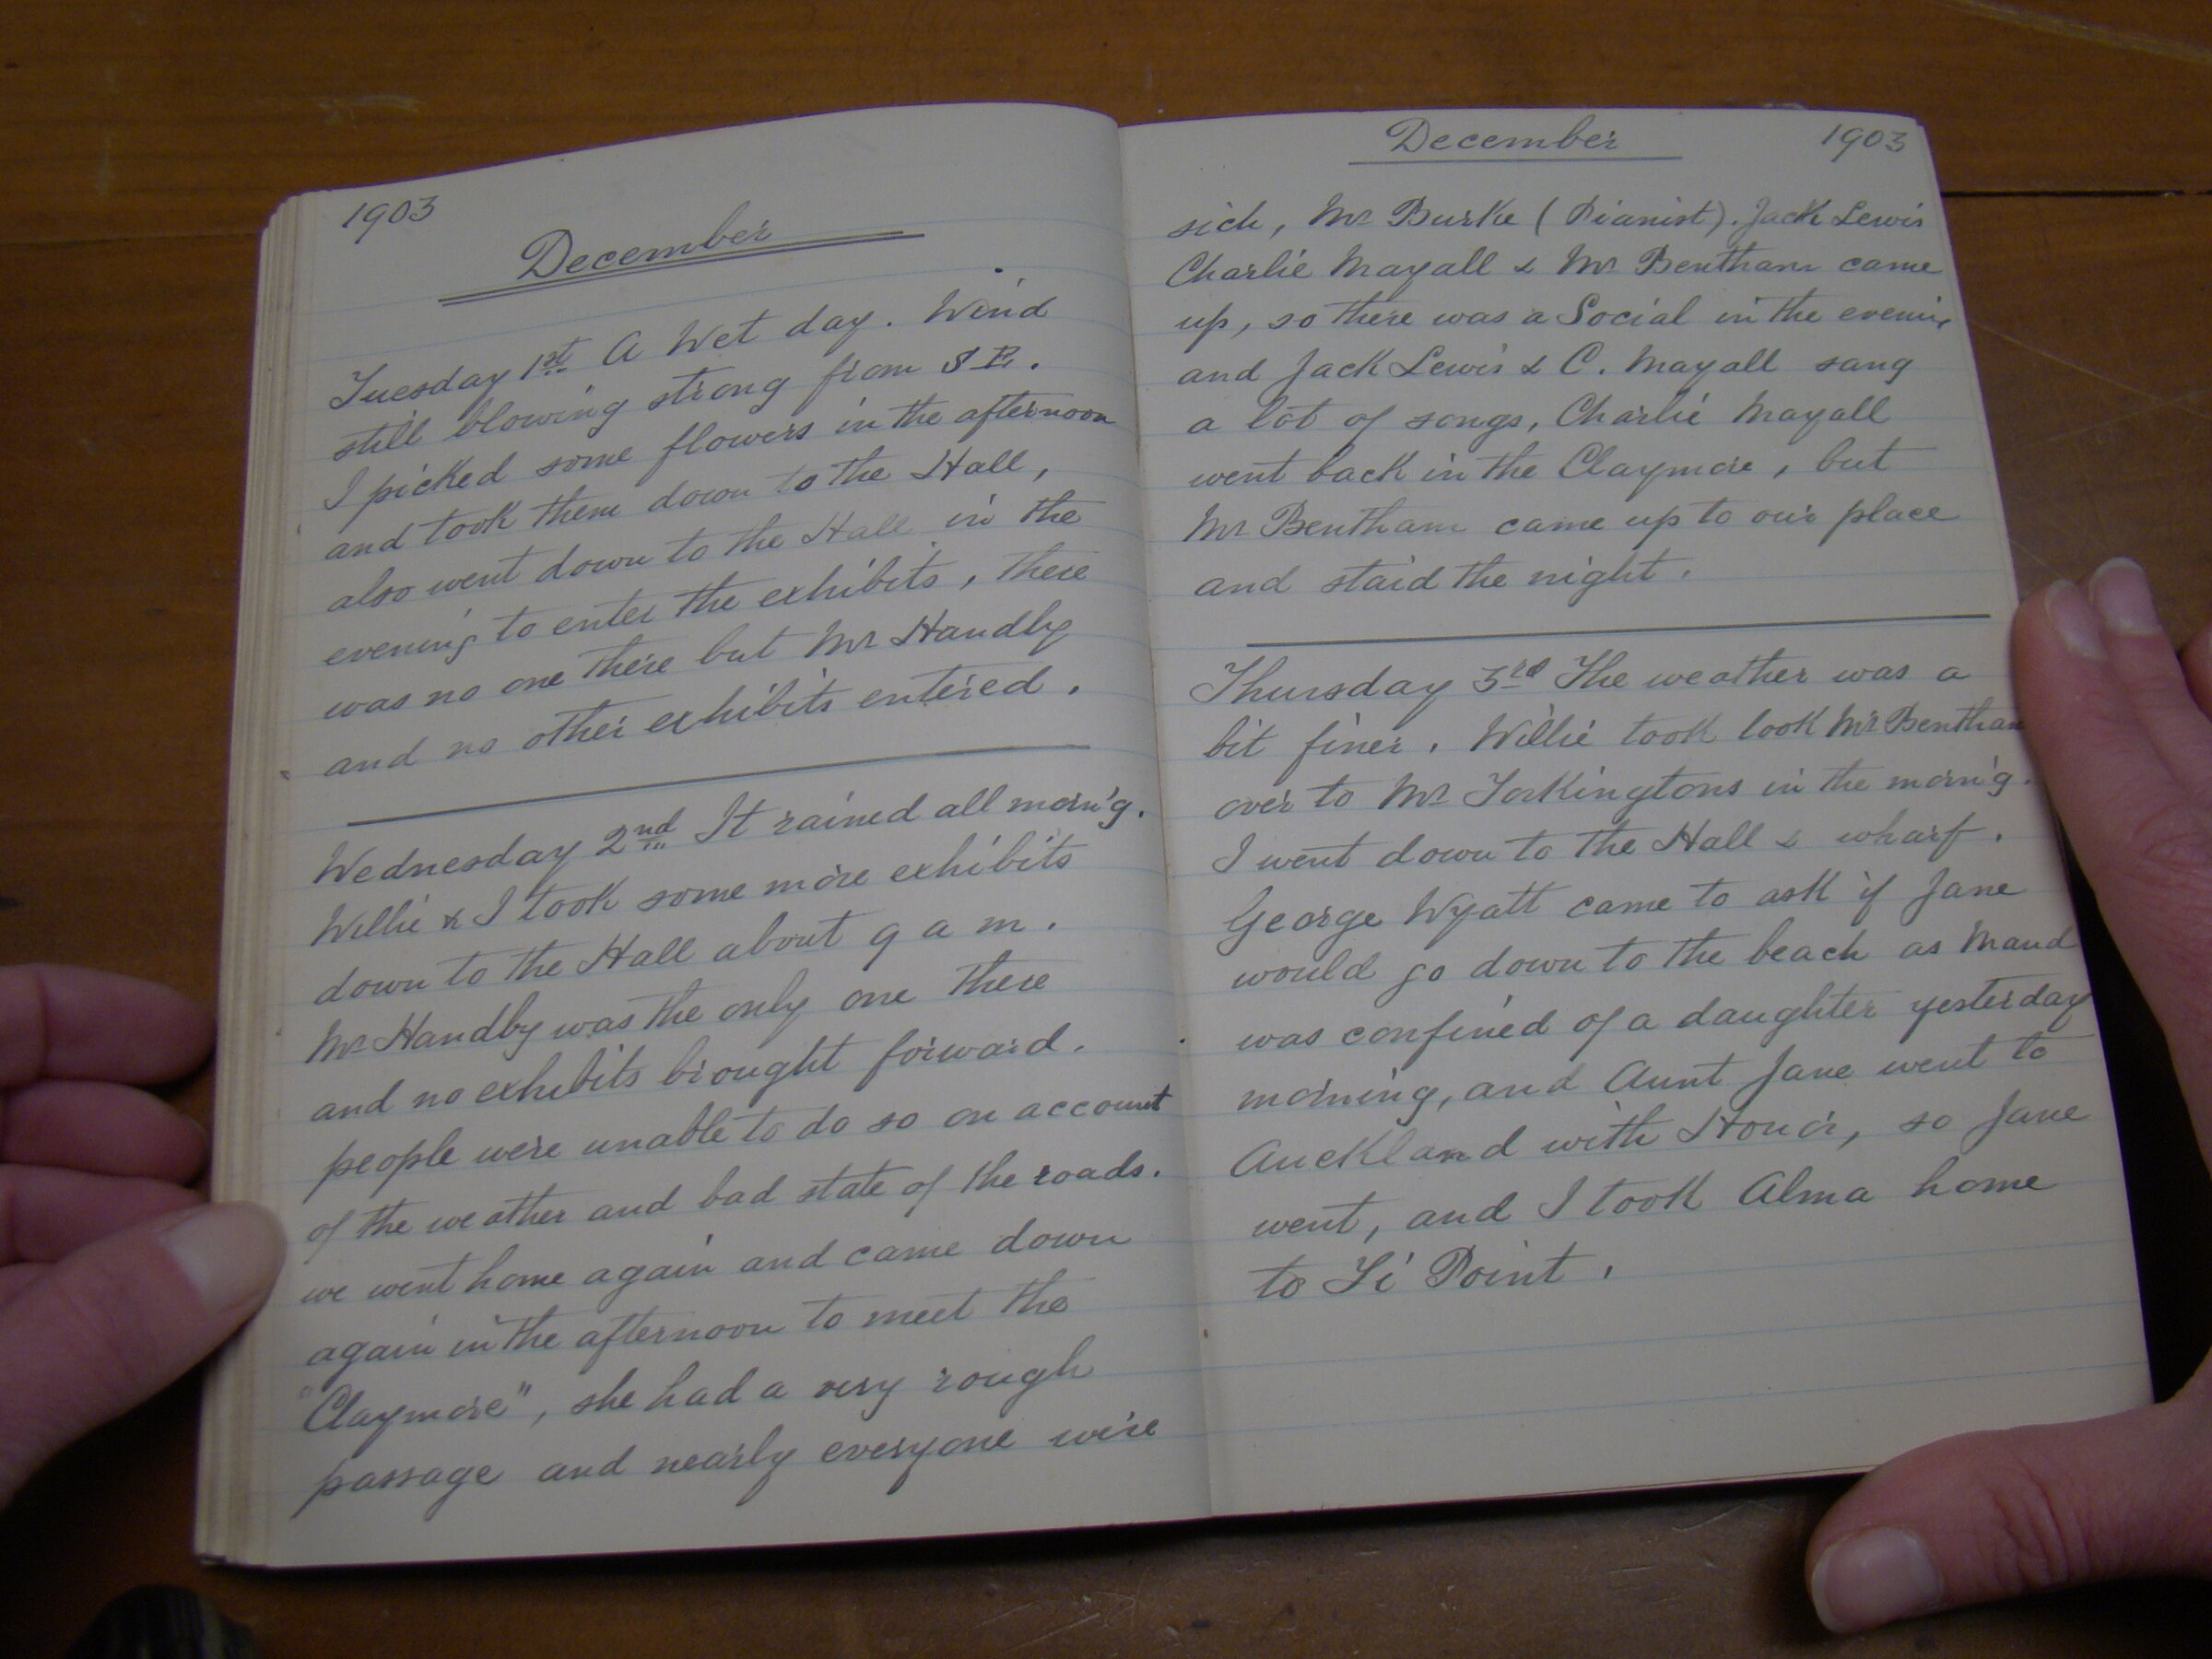 1903
December
Tuesday 1st A Wet day. Wind
still blowing strong from S E.
I picked some flowers in the afternoon
and took them down to the Hall,
also went down to the Hall in the
evening to enter the exhibits, there
was no one there but Mr Handby
and no other exhibits entered.
Wednesday 2nd It rained all morn'g.
Willie & I took some more exhibits
down to the Hall about 9 a m.
Mr Handby was the only one there
and no exhibits brought forward.
people were unable to do so on account
of the weather and bad state of the roads.
we went home again and came down
again in the afternoon to meet the
"Claymore", she had a very rough
passage and nearly everyone were
December 1903
sick, Mr Burke (Pianist). Jack Lewis
Charlie Mayall & Mr Bentham came
up, so there was a Social in the evening
and Jack Lewis & C. Mayall sang
a lot of songs, Charlie Mayall
went back in the Claymore, but
Mr Bentham came up to our place
and staid the night.
Thursday 3rd The weather was a
bit finer. Willie took look Mr Bentham
over to Mr Torkingtons in the morn'g.
I went down to the Hall & wharf.
George Wyatt came to ask if Jane
would go down to the beach as Maud
was confined of a daughter yesterday
morning, and Aunt Jane went to
Auckland with Honor, so Jane
went, and I took Alma home
to Ti Point.